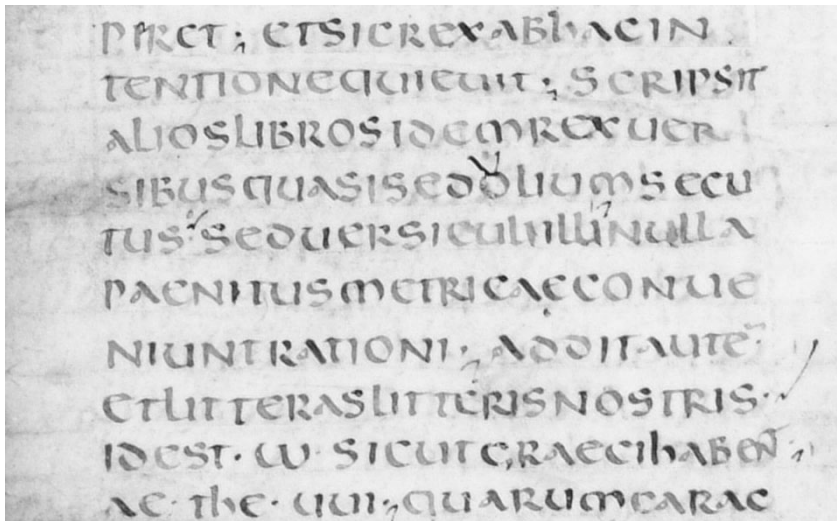 piret ; et sic rex ab hac in
tentione quieuit ; scripsit
alios libros idem rex uer
sibus quasi sedolium secu
tus ; sed uersiculi illi nulla
paenitus metricae conue
niunt rationi ; addit autē
et litteras litteris nostris ·
id est · ω · sicut graeci habeñ ;
ae · the · uui ; quarum carac